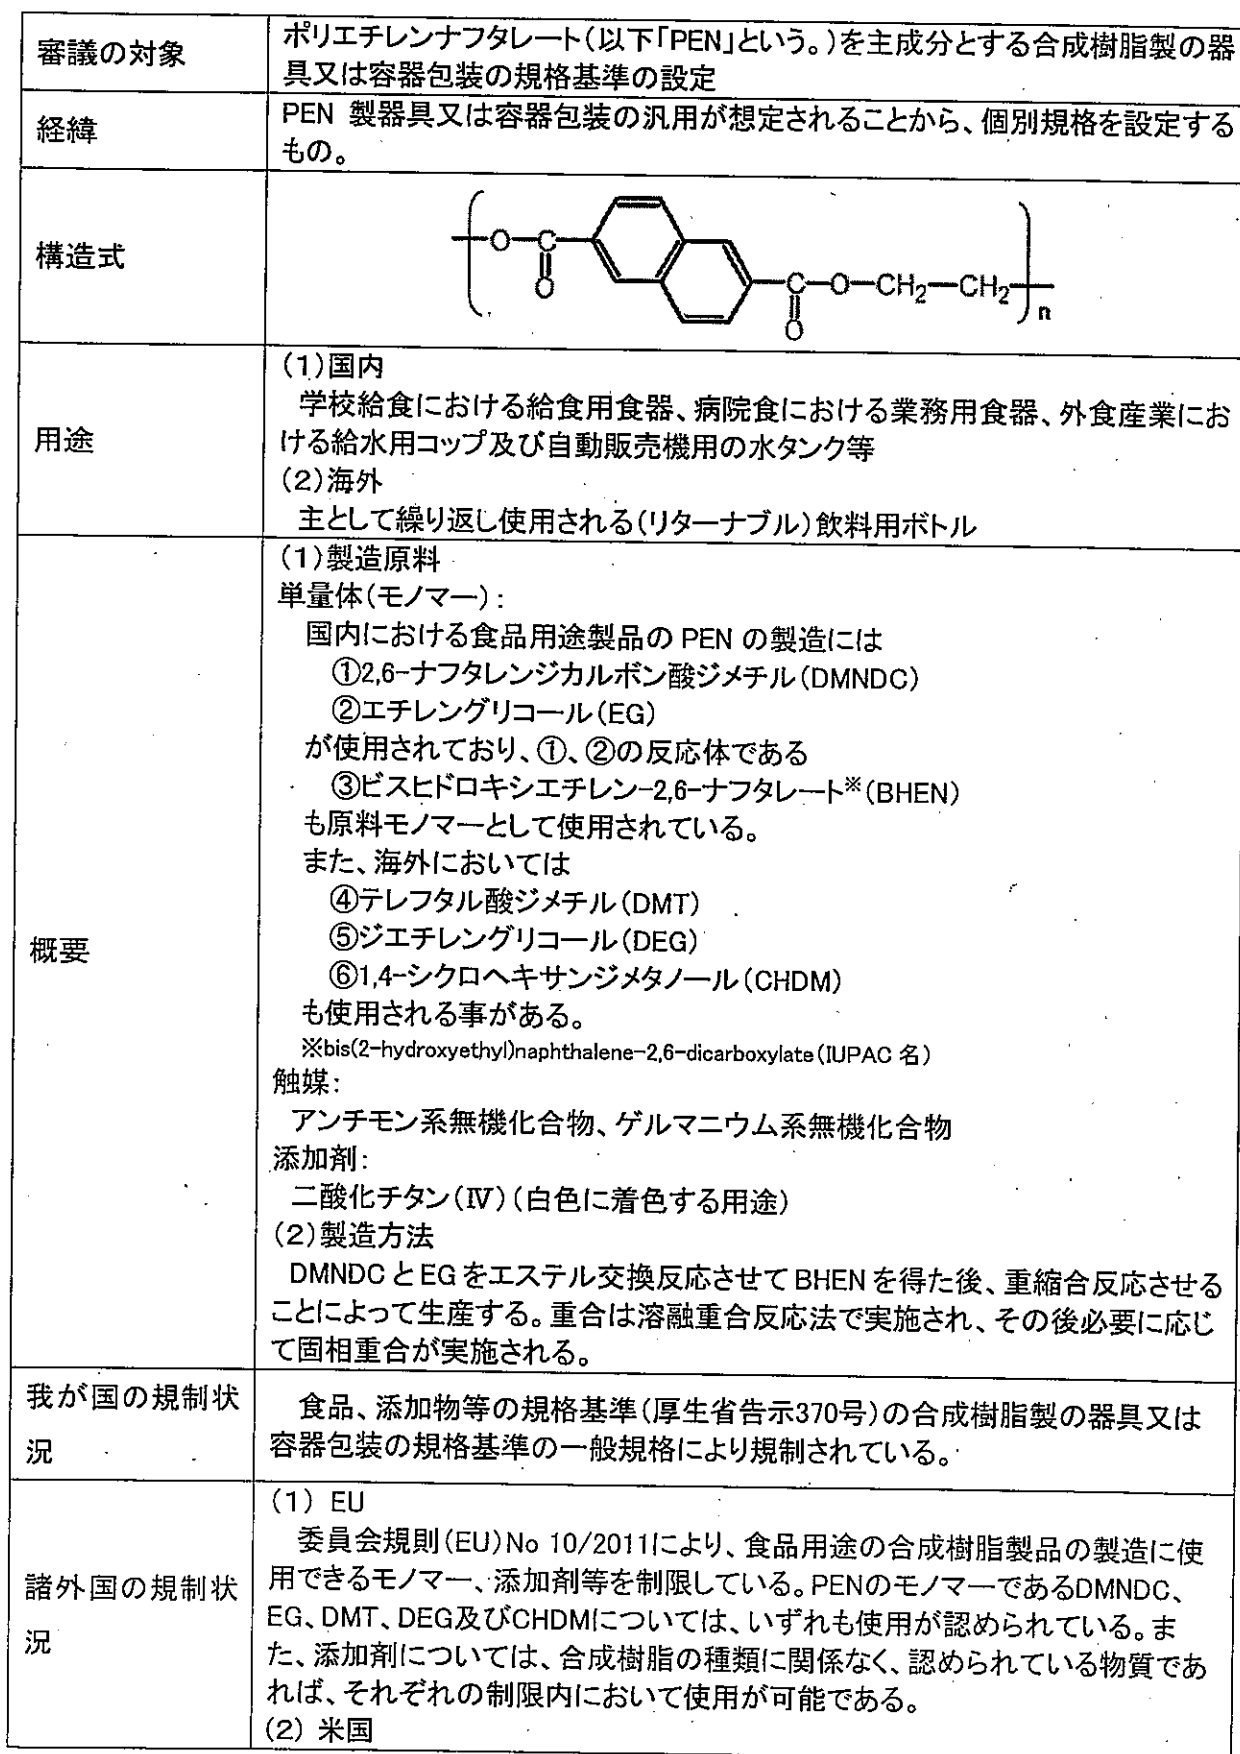 審議の対象
ポリエチレンナフタレート(以下「PEN」という。)を主成分とする合成樹脂製の器
具又は容器包装の規格基準の設定
経緯
PEN 製器具又は容器包装の汎用が想定されることから、個別規格を設定する
もの。
構造式
O C O C O O CH2 CH2 n
用途
(1)国内
学校給食における給食用食器、病院食における業務用食器、外食産業にお
ける給水用コップ及び自動販売機用の水タンク等
(2)海外
主として繰り返し使用される(リターナブル)飲料用ボトル
概要
(1)製造原料
単量体(モノマー):
国内における食品用途製品の PEN の製造には
①2,6-ナフタレンジカルボン酸ジメチル(DMNDC)
②エチレングリコール(EG)
が使用されており、①、②の反応体である
③ビスヒドロキシエチレン-2,6-ナフタレート※(BHEN)
も原料モノマーとして使用されている。
また、海外においては
④テレフタル酸ジメチル(DMT)
⑤ジエチレングリコール(DEG)
⑥1,4-シクロヘキサンジメタノール(CHDM)
も使用される事がある。
※bis(2-hydroxyethyl)naphthalene-2,6-dicarboxylate(IUPAC 名)
触媒:
アンチモン系無機化合物、ゲルマニウム系無機化合物
添加剤:
二酸化チタン(Ⅳ)(白色に着色する用途)
(2)製造方法
DMNDC と EG をエステル交換反応させて BHEN を得た後、重縮合反応させる
ことによって生産する。重合は溶融重合反応法で実施され、その後必要に応じ
て固相重合が実施される。
我が国の規制状
況
食品、添加物等の規格基準(厚生省告示370号)の合成樹脂製の器具又は
容器包装の規格基準の一般規格により規制されている。
諸外国の規制状
況
(1) EU
委員会規則(EU)No 10/2011により、食品用途の合成樹脂製品の製造に使
用できるモノマー、添加剤等を制限している。PENのモノマーであるDMNDC、
EG、DMT、DEG及びCHDMについては、いずれも使用が認められている。ま
た、添加剤については、合成樹脂の種類に関係なく、認められている物質であ
れば、それぞれの制限内において使用が可能である。
(2) 米国